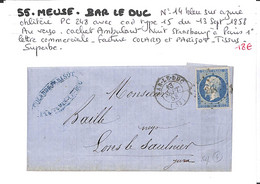 55. MEUSE. BAR LE DUC N° 14 bleu sur azuré
oblitéré PC 248 avec cad type 15 du 13 Sept 1858
Au verso. cachet Ambulant Nuit Strasbourg à Paris 1°
lettre commerciale. facture COLARD et PARISOT. Tissus
Superbe. 18€
Monsieur
Baille
Lons le Saulnier
Jura